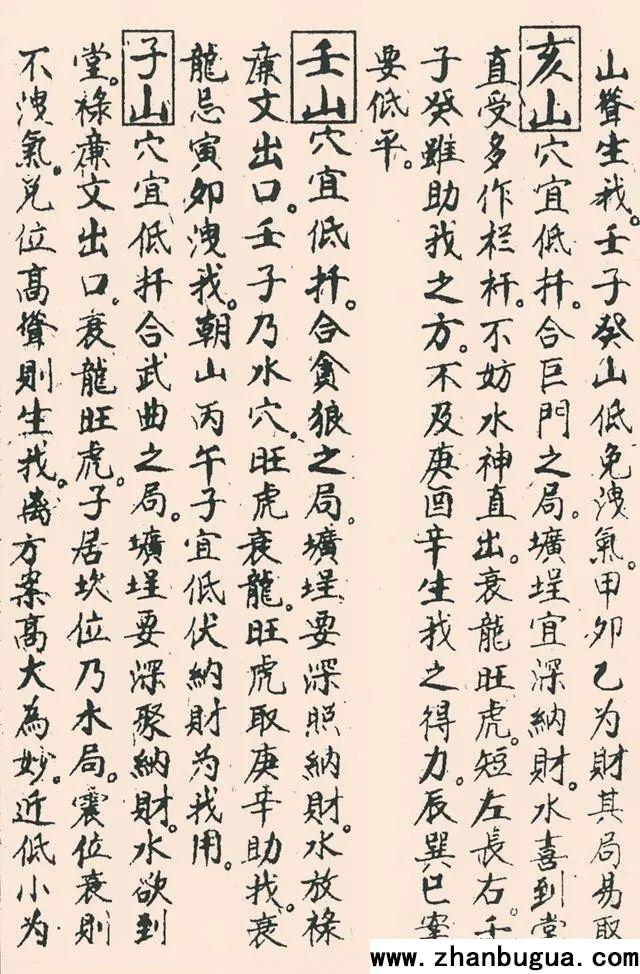 山聳生我。壬子癸山低免洩氣。甲卯乙为財其局易取
亥山穴宜低扦。合巨門之局。壙埕宜深納財。水喜到堂
直受多作栏杆。不妨水神直出。衰龍旺虎。短左長右。壬
子癸雖助我之方。不及庚酉辛生我之得力。辰巽巳案
要低平。
壬山穴宜低扦。合貪狼之局。壙埕要深照納財。水放祿
廉文出口。壬子乃水穴。旺虎衰龍。旺虎取庚辛助我。衰
龍忌寅卯洩我。朝山丙午子宜低伏納財为我用。
子山穴宜低扦合武曲之局。壙埕要深聚納財。水欲到
堂。祿廉文出口。衰龍旺虎。子居坎位乃水局。震位衰則
不洩氣。兌位高聳則生我。离方案高大為妙。近低小为
www.zhanbugua.com